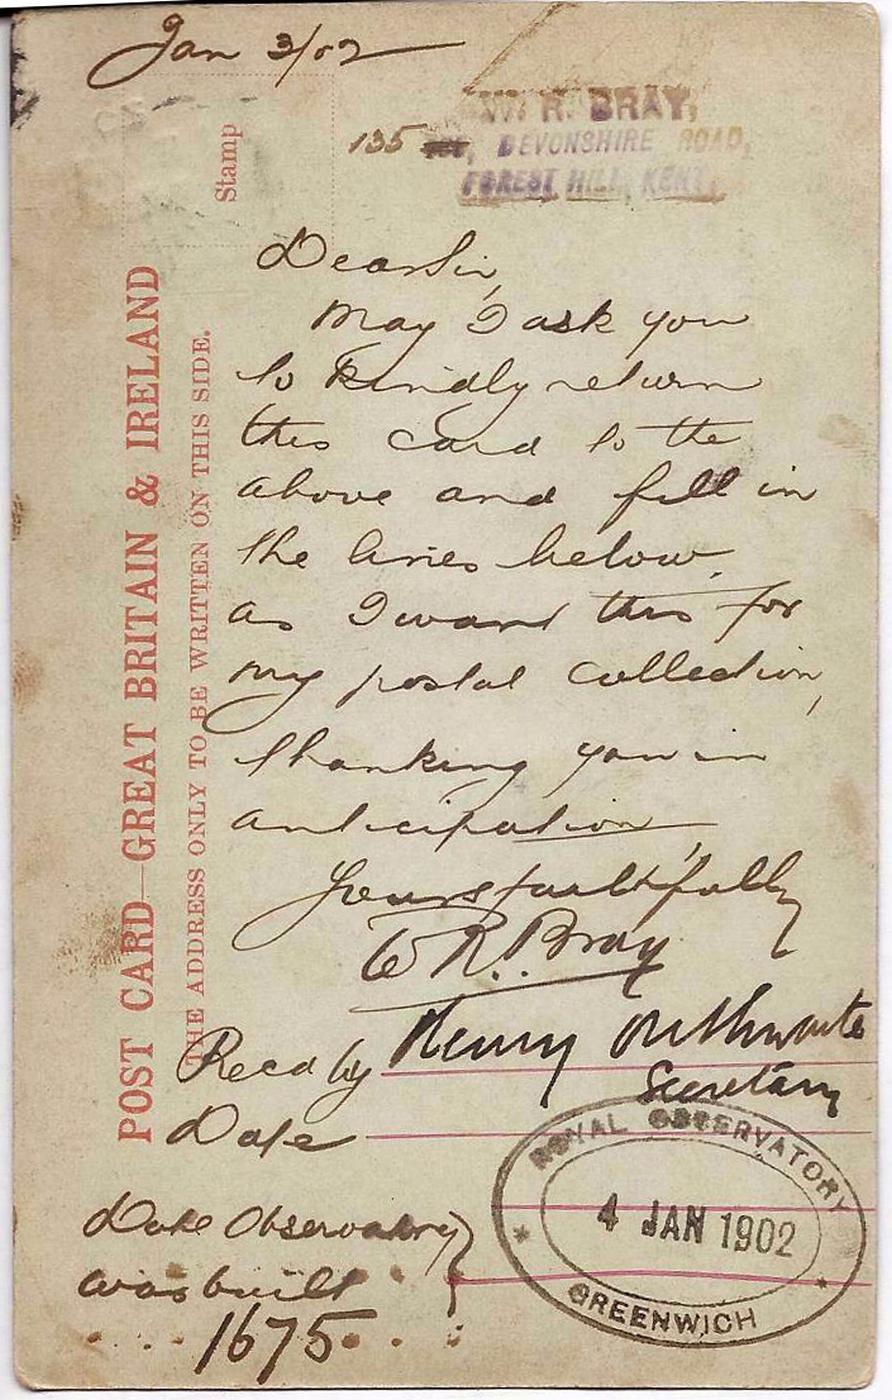 Jan 3/02
Stamp
W. R. BRAY,
135 DEVONSHIRE ROAD,
FOREST HILL, KENT.
POST CARD—GREAT BRITAIN & IRELAND
THE ADDRESS ONLY TO BE WRITTEN ON THIS SIDE.
Dear Sir,
May I ask you
to kindly return
this card to the
above and fill in
the lines below,
as I want this for
my postal collection,
thanking you in
anticipation
Yours faithfully
W R. Bray
Recd by Henry Outhwaite
Secretary
Date
ROYAL OBSERVATORY
4 JAN 1902
GREENWICH
Date Observatory
was built
1675